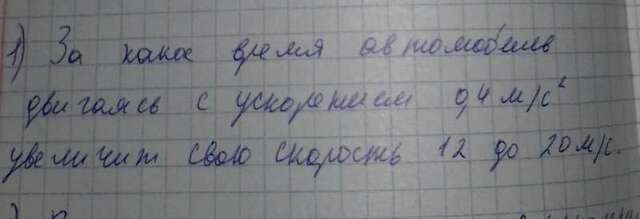 1) За какое время автомобиль
двигаясь с ускорением 0,4 м/с²
увеличит свою скорость 12 до 20 м/с.